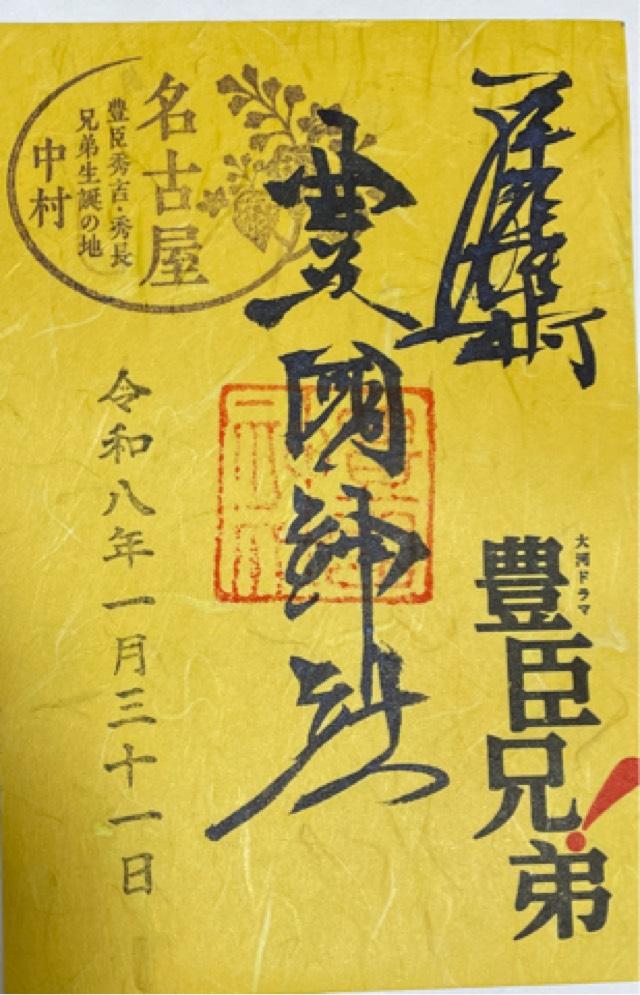 大河ドラマ
豊臣兄弟!
豊國神社
名古屋
豊臣秀吉・秀長
兄弟生誕の地
中村
令和八年一月三十一日